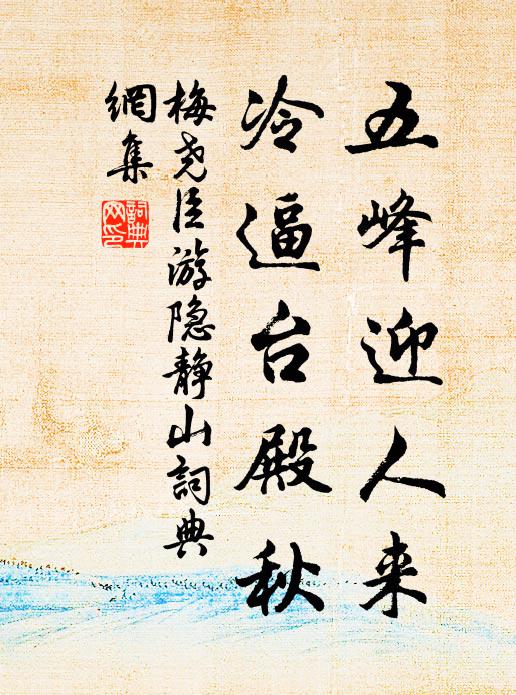 五峰迎人来
冷逼台殿秋
梅尧臣游隐静山詞典
網集
詞典
网印